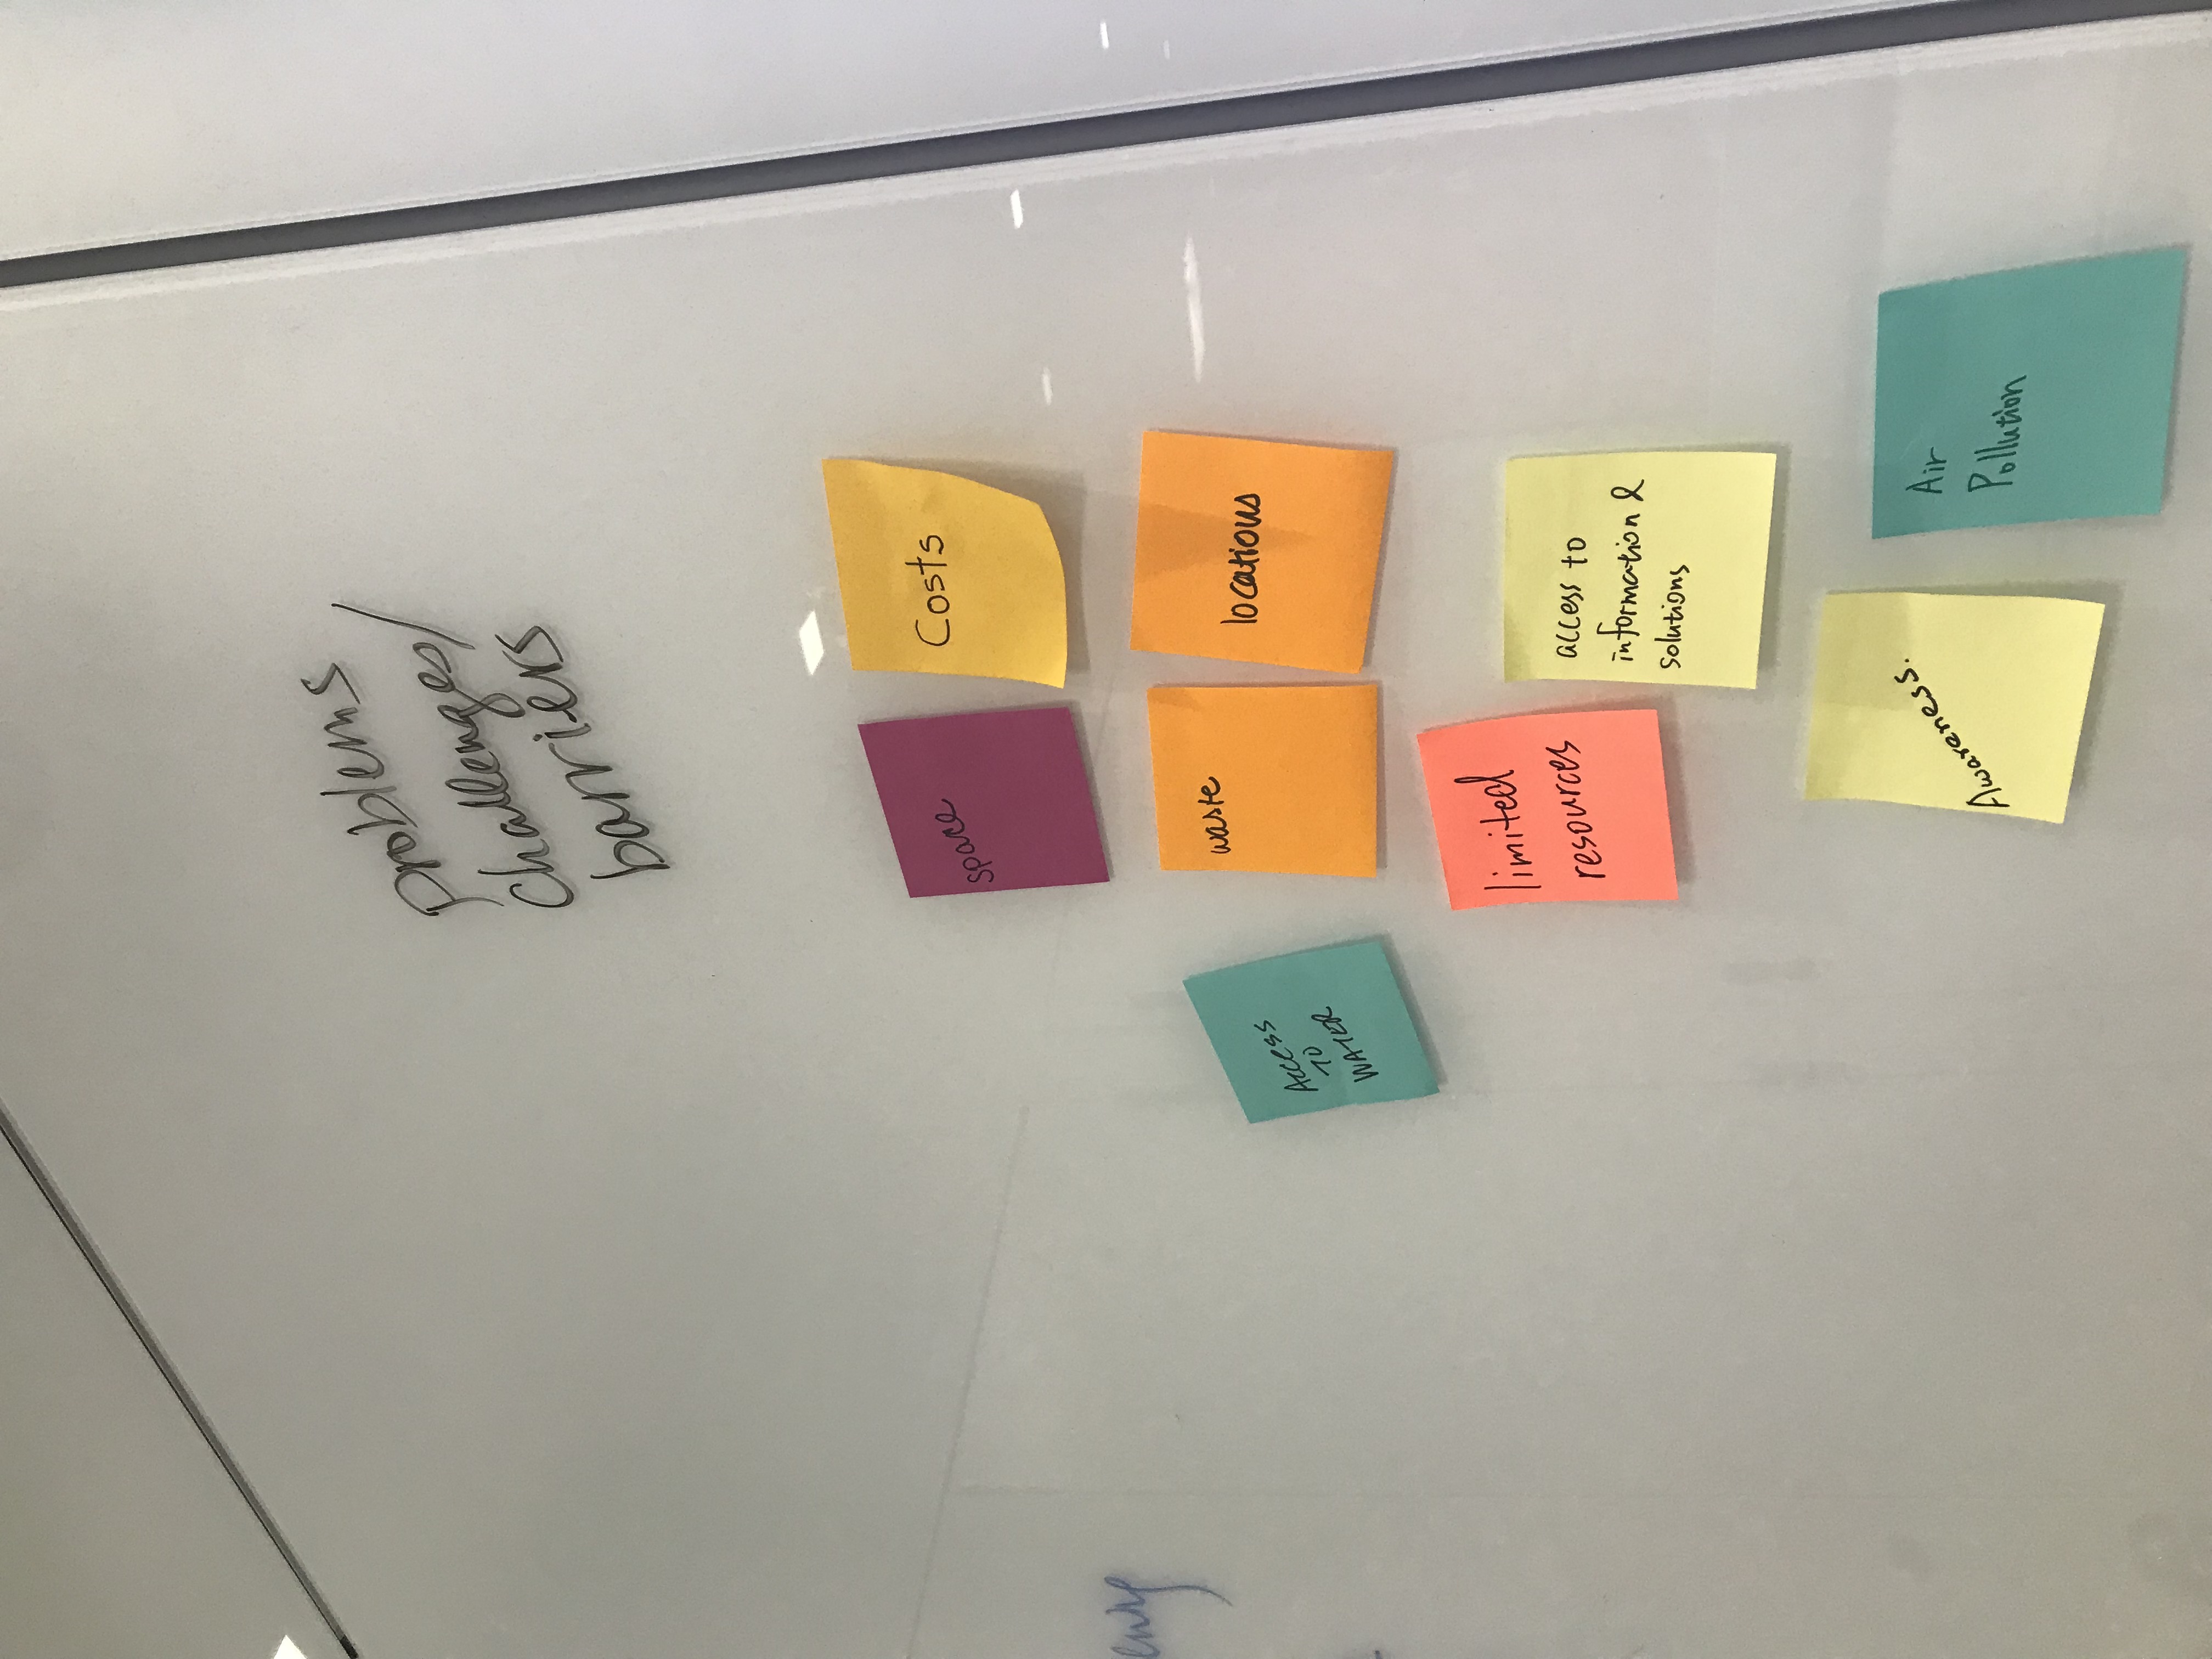 problems
challenges/
barriers
space
Costs
Access
TO
WATER
waste
locations
limited
resources
access to
information &
solutions
Awareness.
Air
Pollution